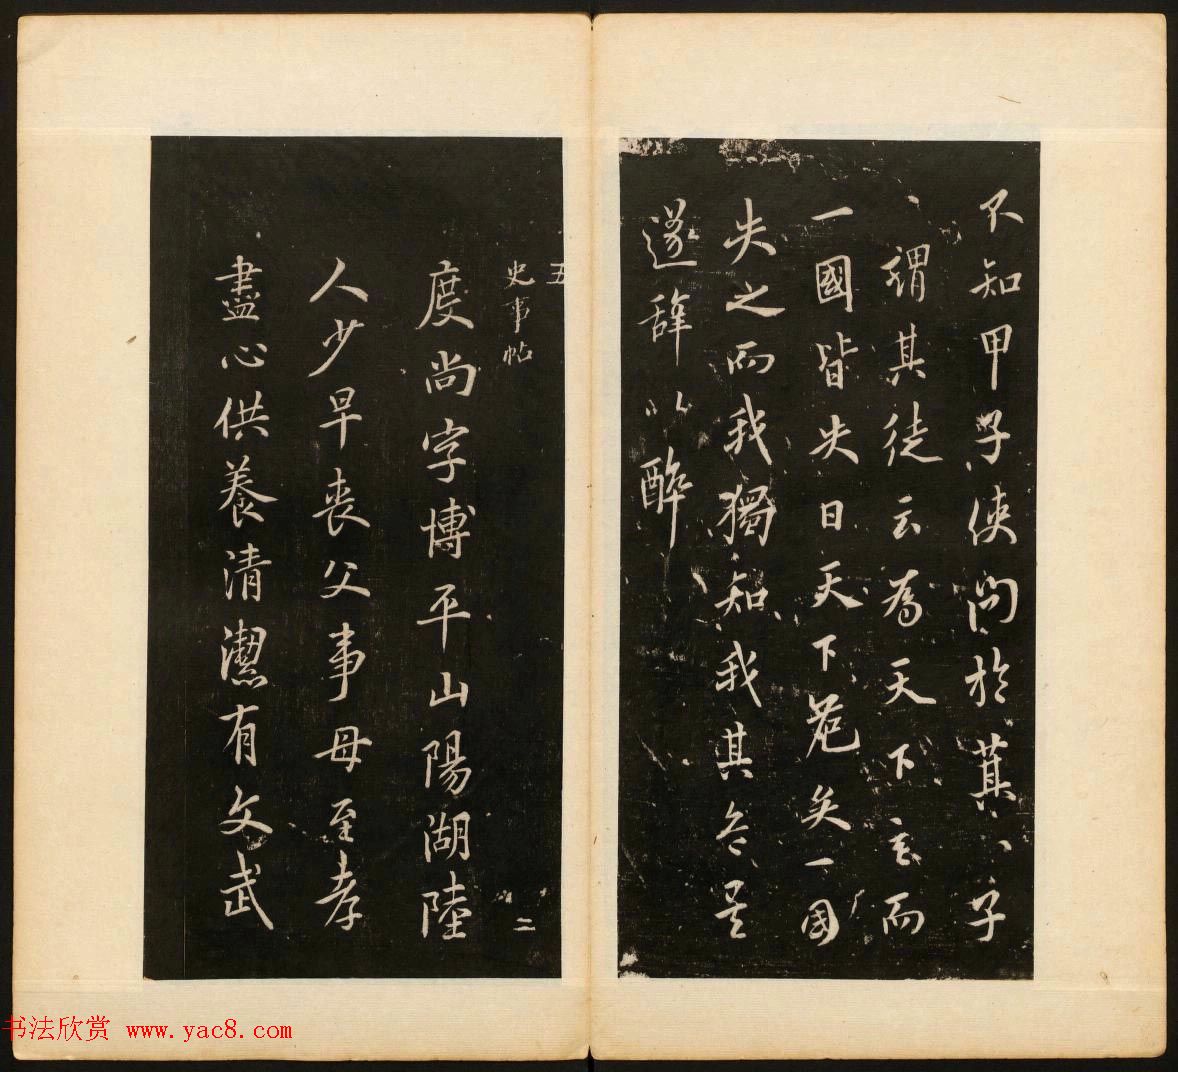 不知甲子使問於箕子
謂其徒云為天下主而
一國皆失日天下危矣一国
失之而我獨知我其危矣
遂辞以醉
五
史事帖
二
度尚字博平山陽湖陸
人少早喪父事母至孝
盡心供養清潔有文武
书法欣赏 www.yac8.com